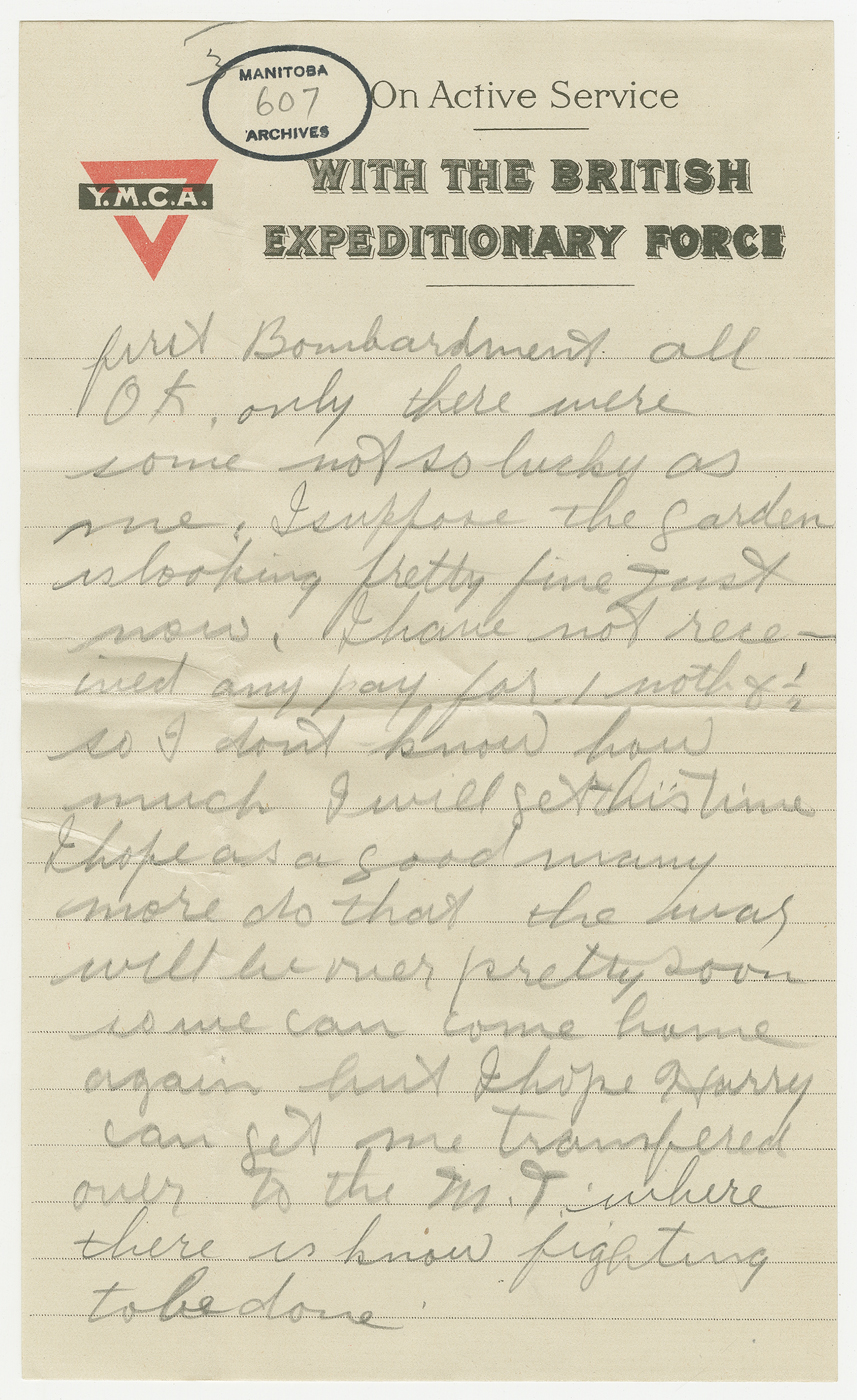 3
MANITOBA
607
ARCHIVES
On Active Service
Y.M.C.A.
WITH THE BRITISH
EXPEDITIONARY FORCE
first Bombardment all
OK, only there were
some not so lucky as
me. I suppose the garden
is looking pretty fine Just
now. I have not rece-
ived any pay for 1 moth & 1/2
so I dont know how
much I will get this time
I hope as a good many
more do that the war
will be over pretty soon
so we can come home
again but I hope Harry
can get me transfered
over to the M.T. where
there is know fighting
to be done.